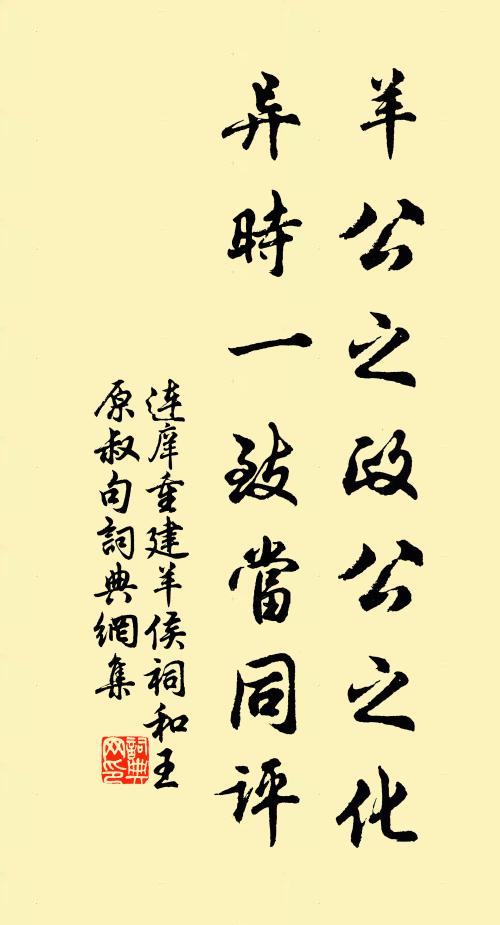 羊公之政公之化
异時一致當同評
连庠重建羊侯祠和王
原叔句詞典網集
詞典網印